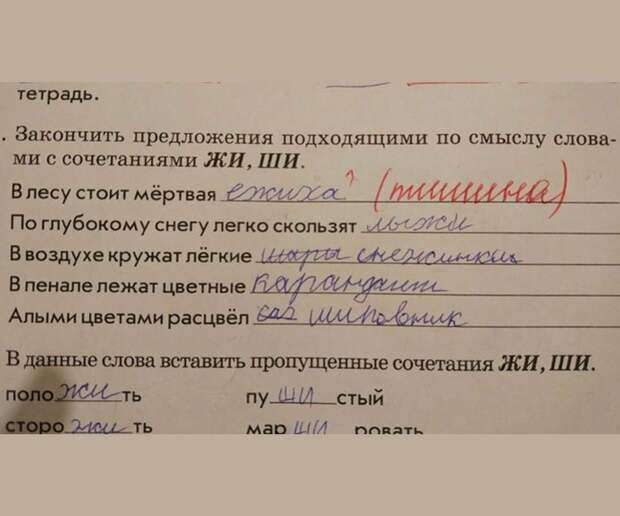 тетрадь.
. Закончить предложения подходящими по смыслу слова-
ми с сочетаниями ЖИ, ШИ.
В лесу стоит мёртвая ежиха ? (тишина)
По глубокому снегу легко скользят лыжи
В воздухе кружат лёгкие шары снежинки
В пенале лежат цветные карандаши
Алыми цветами расцвёл шиповник
В данные слова вставить пропущенные сочетания ЖИ, ШИ.
поло жи ть пу ши стый
сторо жи ть мар ши ровать